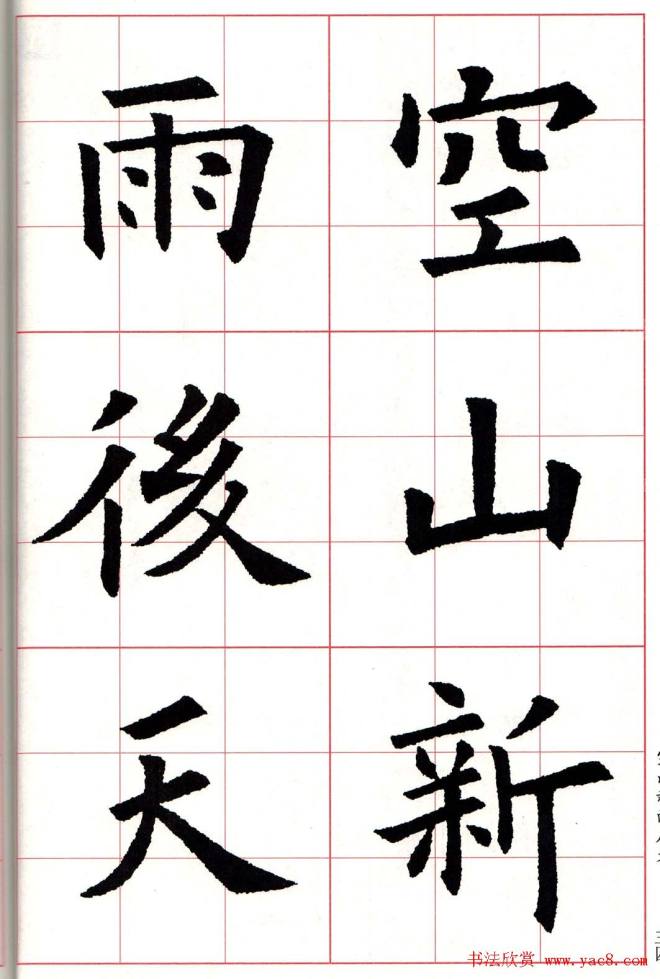 空山新
雨後天
书法欣赏 www.yac8.com